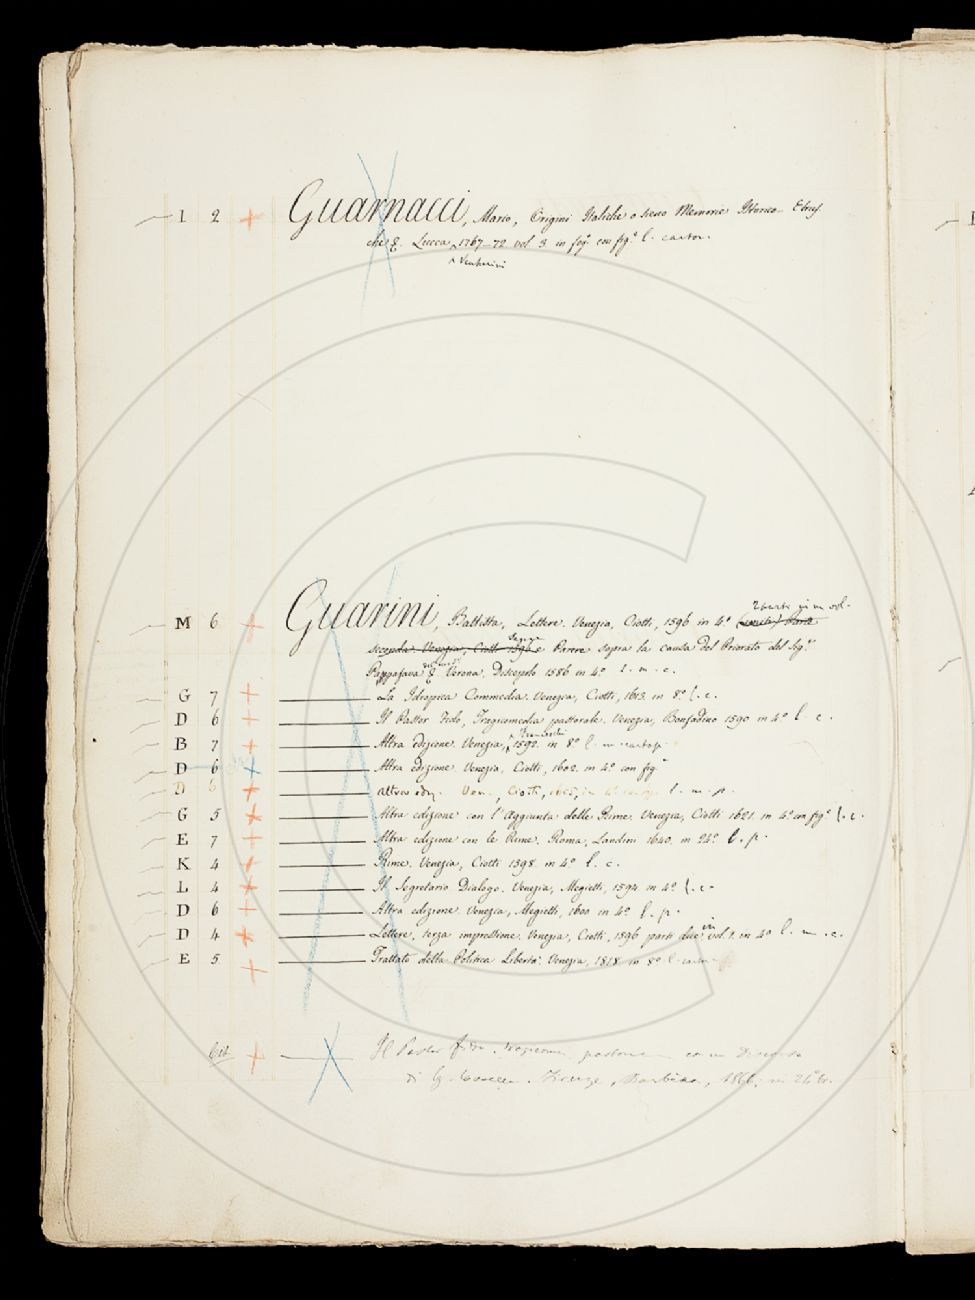 I 2 Guarnacci, Mario, Origini Italiche o sieno Memorie Istorico-Etrus
che Lucca 1767-72 vol. 3 in fog.º con fig.e l. carton.
Venturini
2 parti in un vol.
M 6 Guarini, Battista, Lettere. Venezia, Ciotti, 1596 in 4º (unita) Parte
seconda Venezia, Ciotti 1596 e Parere sopra la causa del Priorato del Sig.r
Pappafava Verona, Discepolo 1586 in 4º l. m. c.
G 7 La Idropica Commedia. Venezia, Ciotti, 1613. in 8º l. c.
D 6 Il Pastor Fido, Tragicomedia pastorale. Venezia, Bonfadino 1590 in 4º l. c.
Franceschi
B 7 Altra edizione. Venezia, 1592. in 8º l. m. cartap.
D 6 Altra edizione. Venezia, Ciotti, 1602. in 4º con fig.e
D 6 altra ediz. Ven., Ciotti, 1605, in 4º l. m. p.
G 5 Altra edizione con l'Aggiunta delle Rime. Venezia, Ciotti 1621. in 4º con fig.e l. c.
E 7 Altra edizione con le Rime. Roma, Landini 1640. in 24º l. p.
K 4 Rime. Venezia, Ciotti 1598. in 4º l. c.
L 4 Il Segretario Dialogo. Venezia, Megietti, 1594. in 4º l. c.
D 6 Altra edizione. Venezia, Megietti, 1600 in 4º l. p.
D 4 Lettere, terza impressione. Venezia, Ciotti, 1596 parti due in vol. 1. in 4º l. m. c.
E 5 Trattato della Politica Libertà. Venezia, 1818 in 8º l. carton.
Il Pastor fido, tragicom. pastorale con un Discorso
di G. Firenze, Barbèra, 1866, in 24º